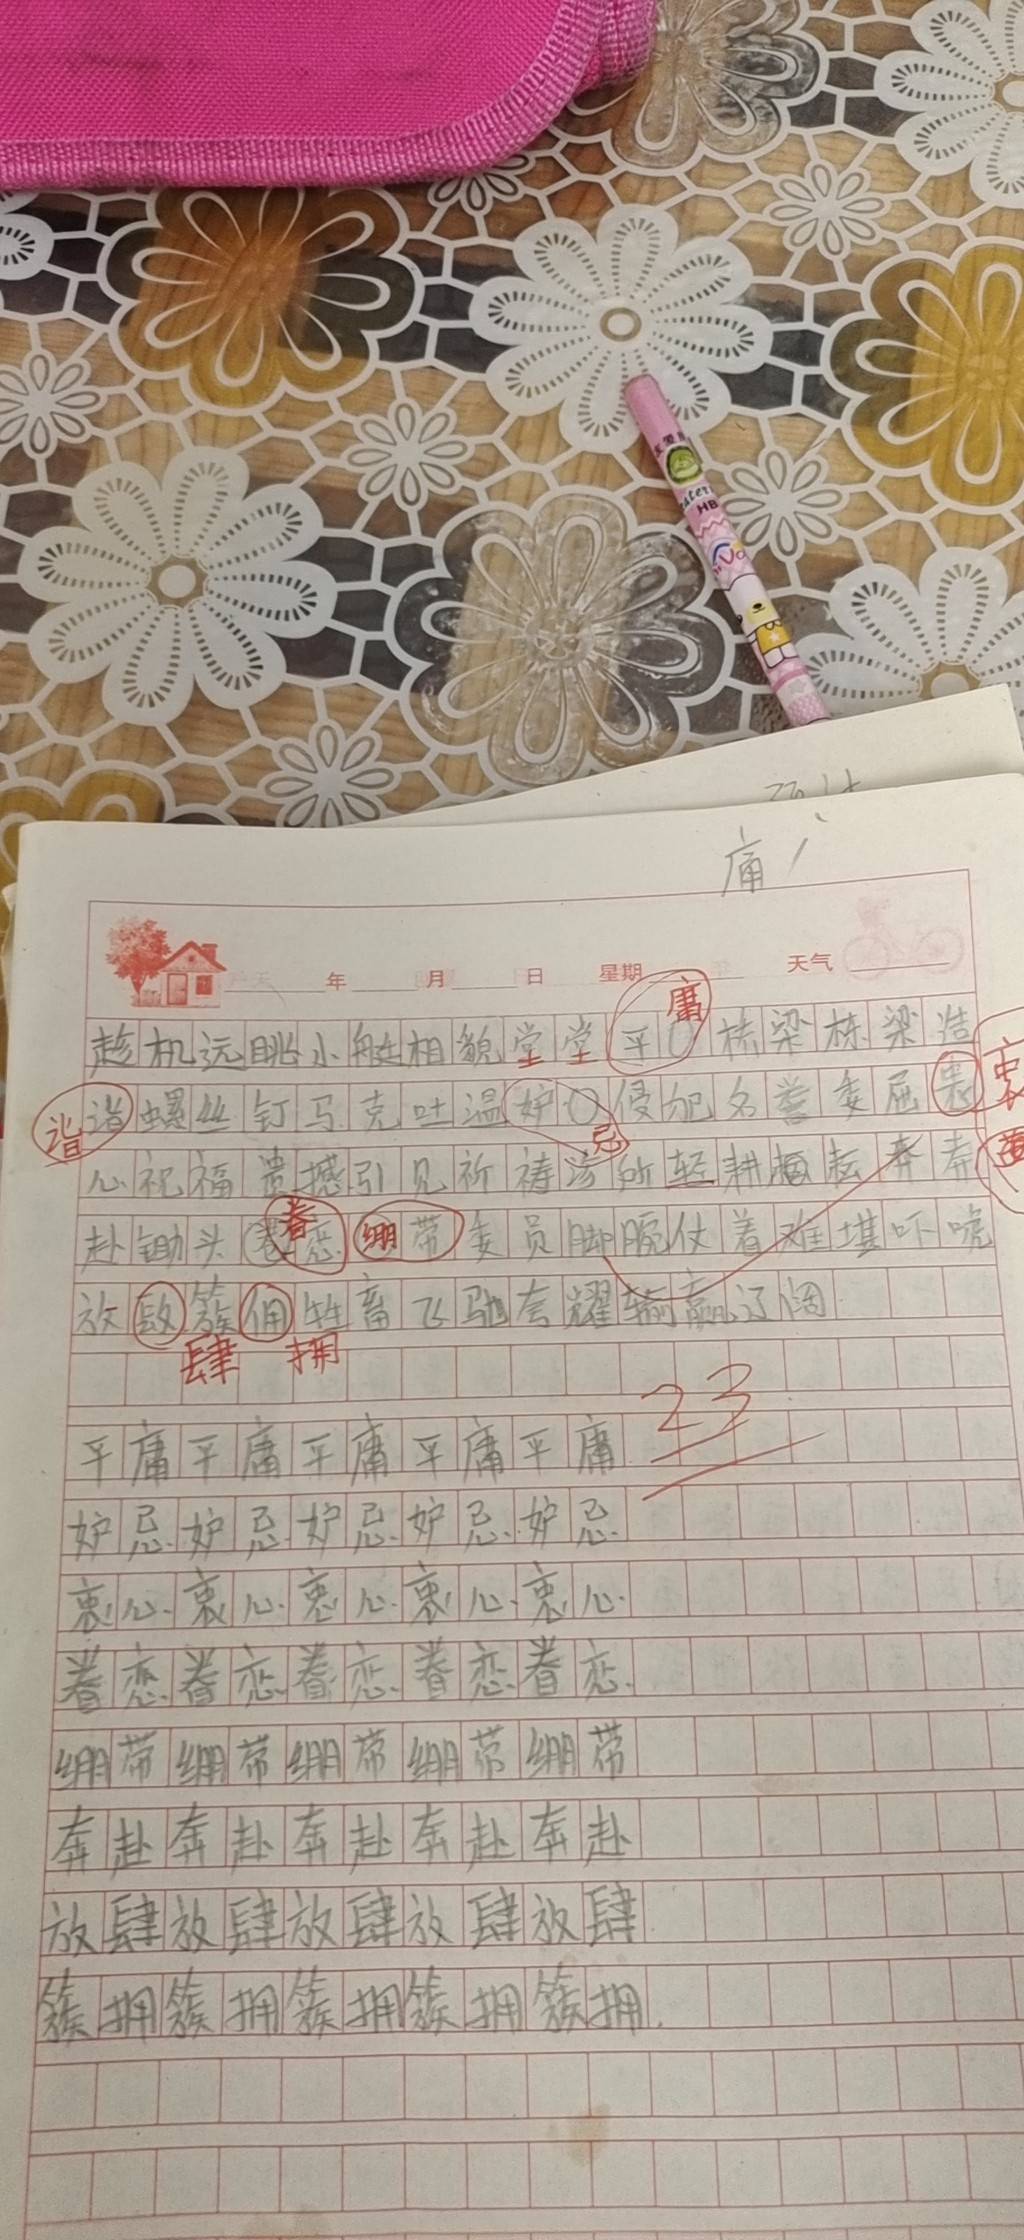 HB
痛
年 月 日 星期 天气
庸
趁机远眺小艇相貌堂堂平 栋梁栋梁造
谐 谐螺丝钉马克吐温妒 侵犯名誉委屈 衷
忌
心祝福遗憾引见祈祷 所轻耕 耘奔奔
眷
赴锄头 恋绷带委员脚腕仗着难堪吓唬
放 簇佣牲畜飞驰夸耀输赢辽阔
肆 拥
23
平庸平庸平庸平庸平庸
妒忌妒忌妒忌妒忌妒忌
衷心衷心衷心衷心衷心
眷恋眷恋眷恋眷恋眷恋
绷带绷带绷带绷带绷带
奔赴奔赴奔赴奔赴奔赴
放肆放肆放肆放肆放肆
簇拥簇拥簇拥簇拥簇拥